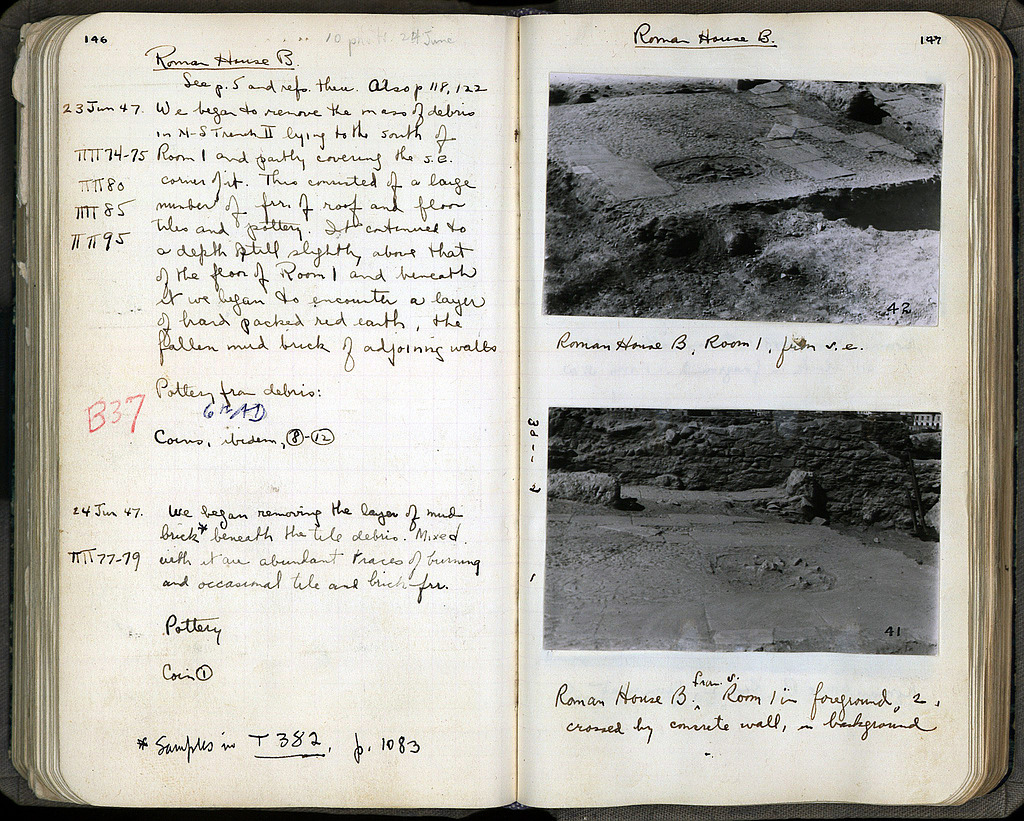 146
10 24 June
Roman House B.
See p. 5 and refs. there. Also p 118, 122
23 Jun 47. We began to remove the mass of debris
in N-S Trench II lying to the south of
ΠΠ 74-75 Room 1 and partly covering the s.e.
ΠΠ 80 corner of it. This consisted of a large
ΠΠ 85 number of frr. of roof and floor
ΠΠ 95 tiles and pottery. It continued to
a depth still slightly above that
of the floor of Room 1 and beneath
it we began to encounter a layer
of hard packed red earth, the
fallen mud brick of adjoining walls
Pottery from debris:
6th AD
B37
Coins, ibidem, 8-12
24 Jun 47. We began removing the layer of mud
brick* beneath the tile debris. Mixed
ΠΠ 77-79 with it are abundant traces of burning
and occasional tile and brick frr.
Pottery
Coin 1
* Samples in T 382, p. 1083
147
Roman House B.
42
Roman House B, Room 1, from s.e.
41
Roman House B. from s. Room 1 in foreground, 2,
crossed by concrete wall, in background